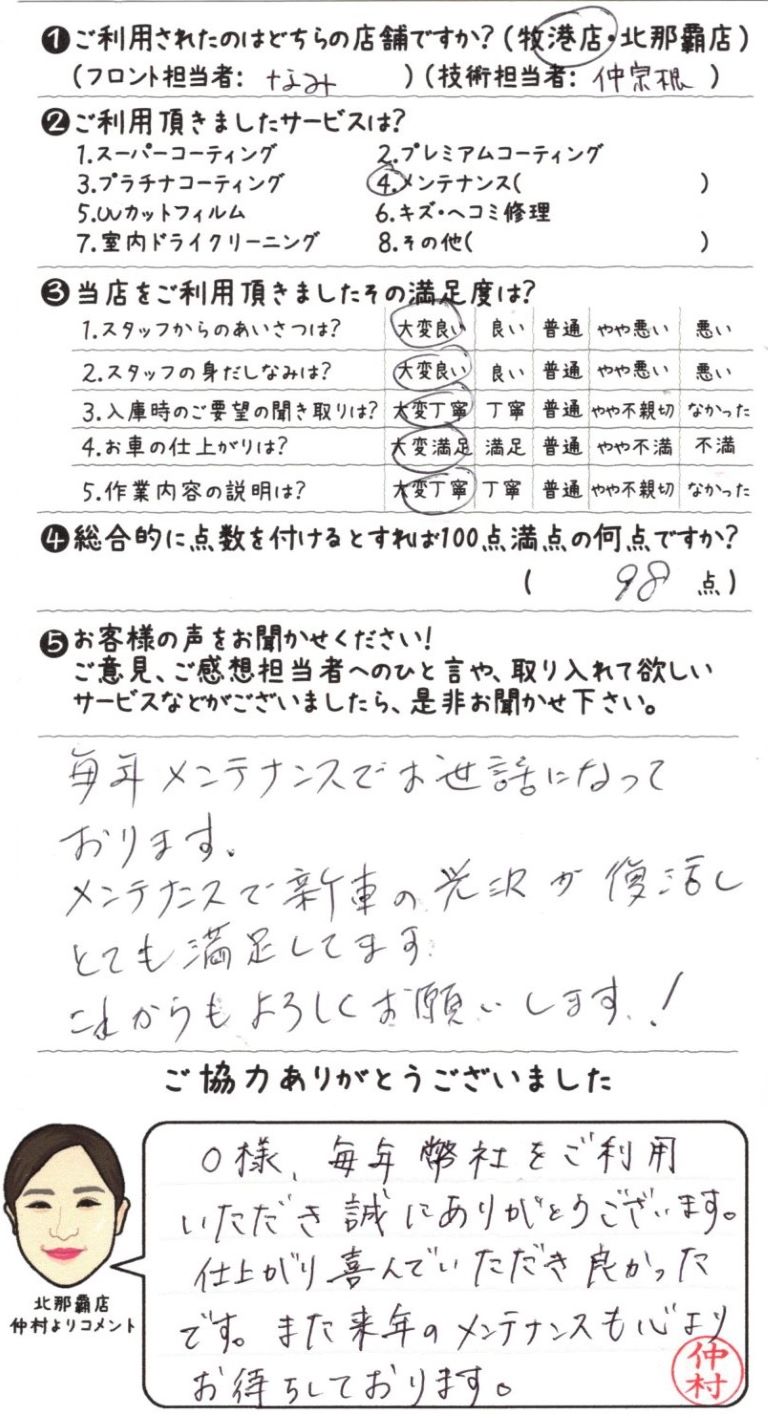 ❶ご利用されたのはどちらの店舗ですか?(牧港店・北那覇店)
(フロント担当者: )(技術担当者: 仲宗根 )
❷ご利用頂きましたサービスは?
1.スーパーコーティング 2.プレミアムコーティング
3.プラチナコーティング 4.メンテナンス( )
5.UVカットフィルム 6.キズ・ヘコミ修理
7.室内ドライクリーニング 8.その他( )
❸当店をご利用頂きましたその満足度は?
1.スタッフからのあいさつは? 大変良い 良い 普通 やや悪い 悪い
2.スタッフの身だしなみは? 大変良い 良い 普通 やや悪い 悪い
3.入庫時のご要望の聞き取りは? 大変丁寧 丁寧 普通 やや不親切 なかった
4.お車の仕上がりは? 大変満足 満足 普通 やや不満 不満
5.作業内容の説明は? 大変丁寧 丁寧 普通 やや不親切 なかった
❹総合的に点数を付けるとすれば100点満点の何点ですか?
( 98 点)
❺お客様の声をお聞かせください!
ご意見、ご感想担当者へのひと言や、取り入れて欲しい
サービスなどがございましたら、是非お聞かせ下さい。
毎年メンテナンスでお世話になって
おります。
メンテナンスで新車の光沢が復活し
とても満足してます
これからもよろしくお願いします!
ご協力ありがとうございました
O様、毎年幣社をご利用
いただき誠にありがとうございます。
仕上がり喜んでいただき良かった
です。また来年のメンテナンスも心より
お待ちしております。
北那覇店
仲村よりコメント
仲村